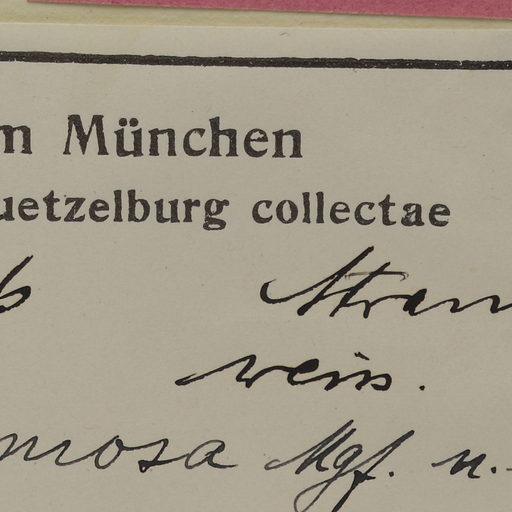 m München
uetzelburg collectae
b Stran
weiss.
mosa Mgf. n.